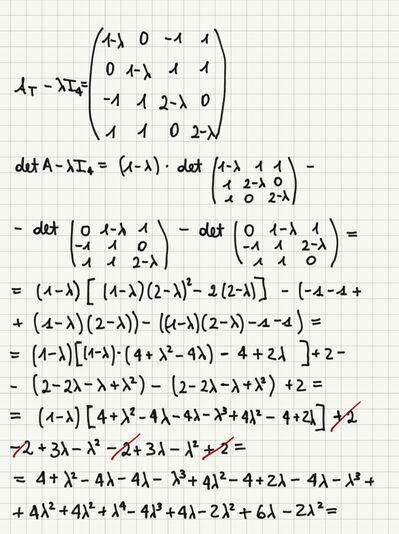 A_T - λI₄ = (1-λ 0 -1 1
0 1-λ 1 1
-1 1 2-λ 0
1 1 0 2-λ)
det A - λI₄ = (1-λ) · det (1-λ 1 1
1 2-λ 0
1 0 2-λ) -
- det (0 1-λ 1
-1 1 0
1 1 2-λ) - det (0 1-λ 1
-1 1 2-λ
1 1 0) =
= (1-λ) [ (1-λ)(2-λ)² - 2(2-λ)] - (-1-1 +
+ (1-λ)(2-λ)) - ((1-λ)(2-λ) -1 -1) =
= (1-λ)[(1-λ)·(4+λ²-4λ) - 4+2λ ] + 2 -
- (2-2λ-λ+λ²) - (2-2λ-λ+λ²) + 2 =
= (1-λ)[4+λ²-4λ-4λ-λ³+4λ²-4+2λ] +2
-2+3λ-λ² -2+3λ-λ²+2 =
= 4+λ²-4λ-4λ-λ³+4λ²-4+2λ-4λ-λ³+
+4λ²+4λ²+λ⁴-4λ³+4λ-2λ²+6λ-2λ²=